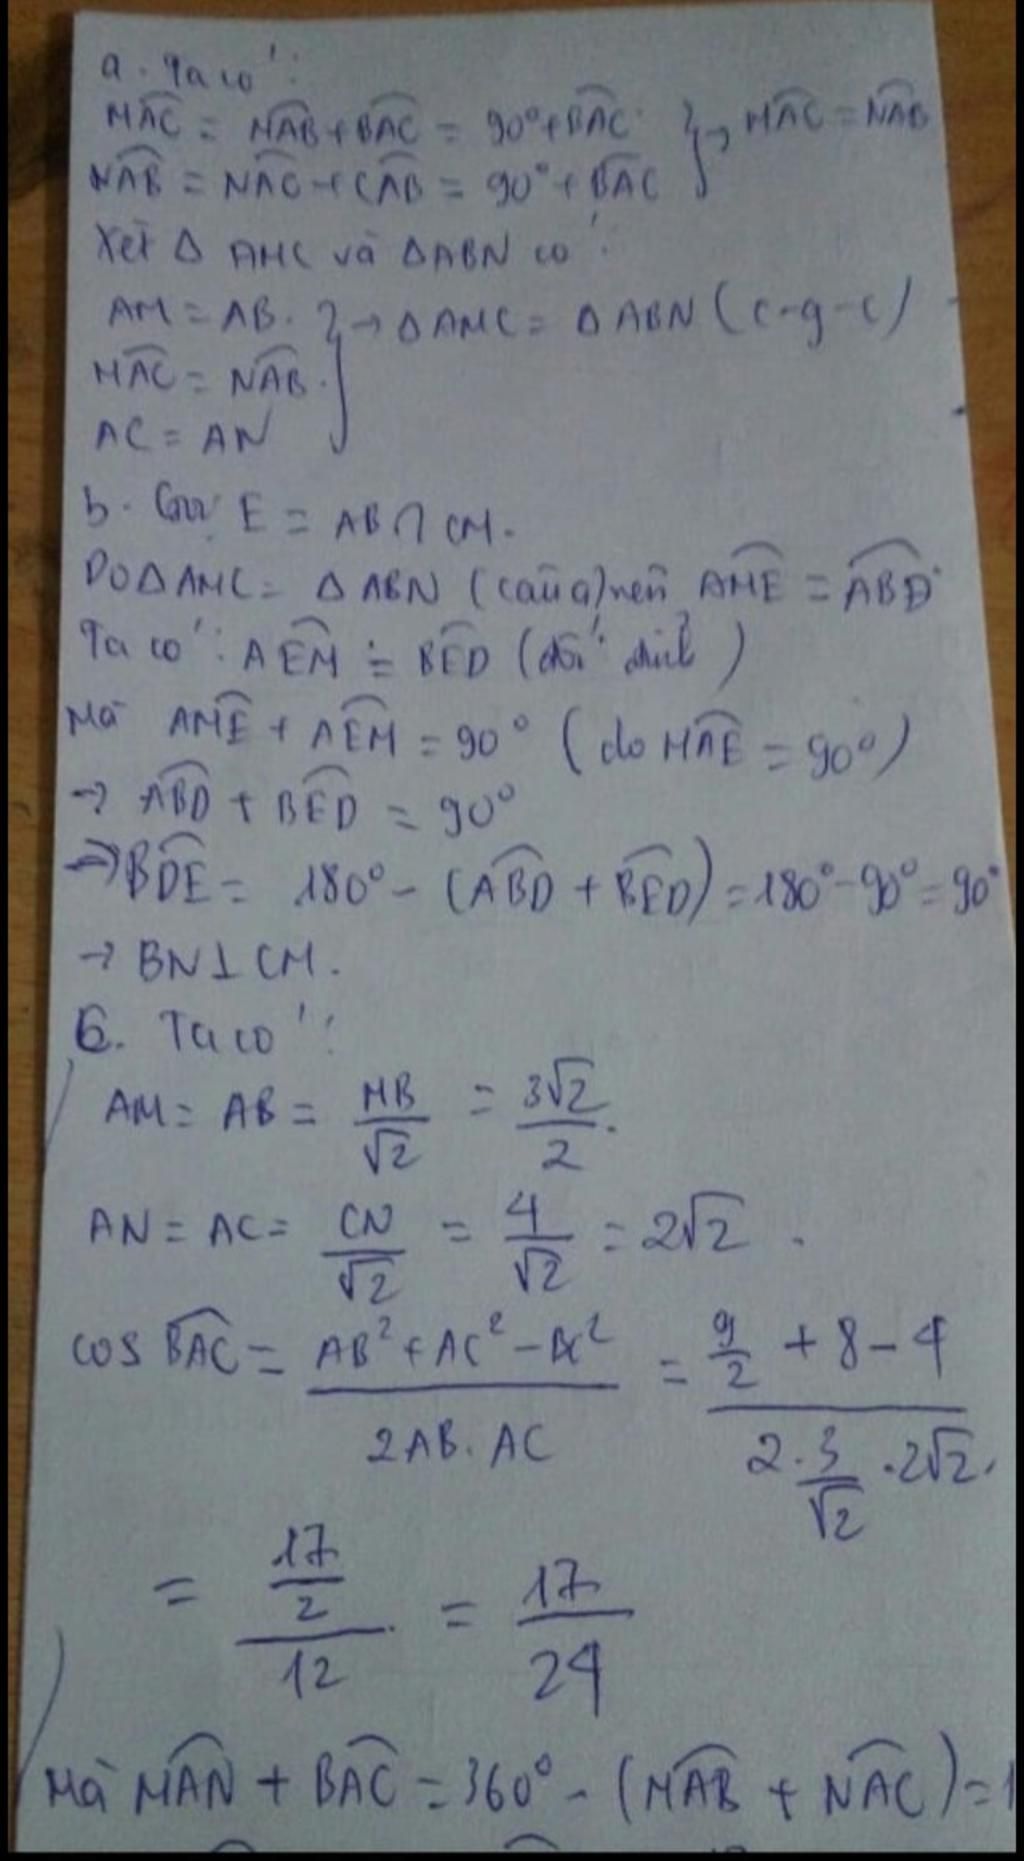 a. Ta có:
MAC = MAB + BAC = 90° + BAC } → MAC = NAB
NAB = NAC + CAB = 90° + BAC
Xét Δ AMC và Δ ABN có:
AM = AB. } → Δ AMC = Δ ABN (c-g-c)
MAC = NAB.
AC = AN
b. Gọi E = AB ∩ CM.
Do Δ AMC = Δ ABN (câu a) nên AME = ABD
Ta có: AEM = BED (đối đỉnh)
Mà AME + AEM = 90° (do MAE = 90°)
→ ABD + BED = 90°
→ BDE = 180° - (ABD + BED) = 180° - 90° = 90°
→ BN ⊥ CM.
C. Ta có:
AM = AB = MB/√2 = 3√2/2.
AN = AC = CN/√2 = 4/√2 = 2√2.
cos BAC = (AB² + AC² - BC²)/(2AB.AC) = (9/2 + 8 - 4)/(2.3/√2.2√2).
= (17/2)/12 = 17/24
Mà MAN + BAC = 360° - (MAB + NAC) = 1